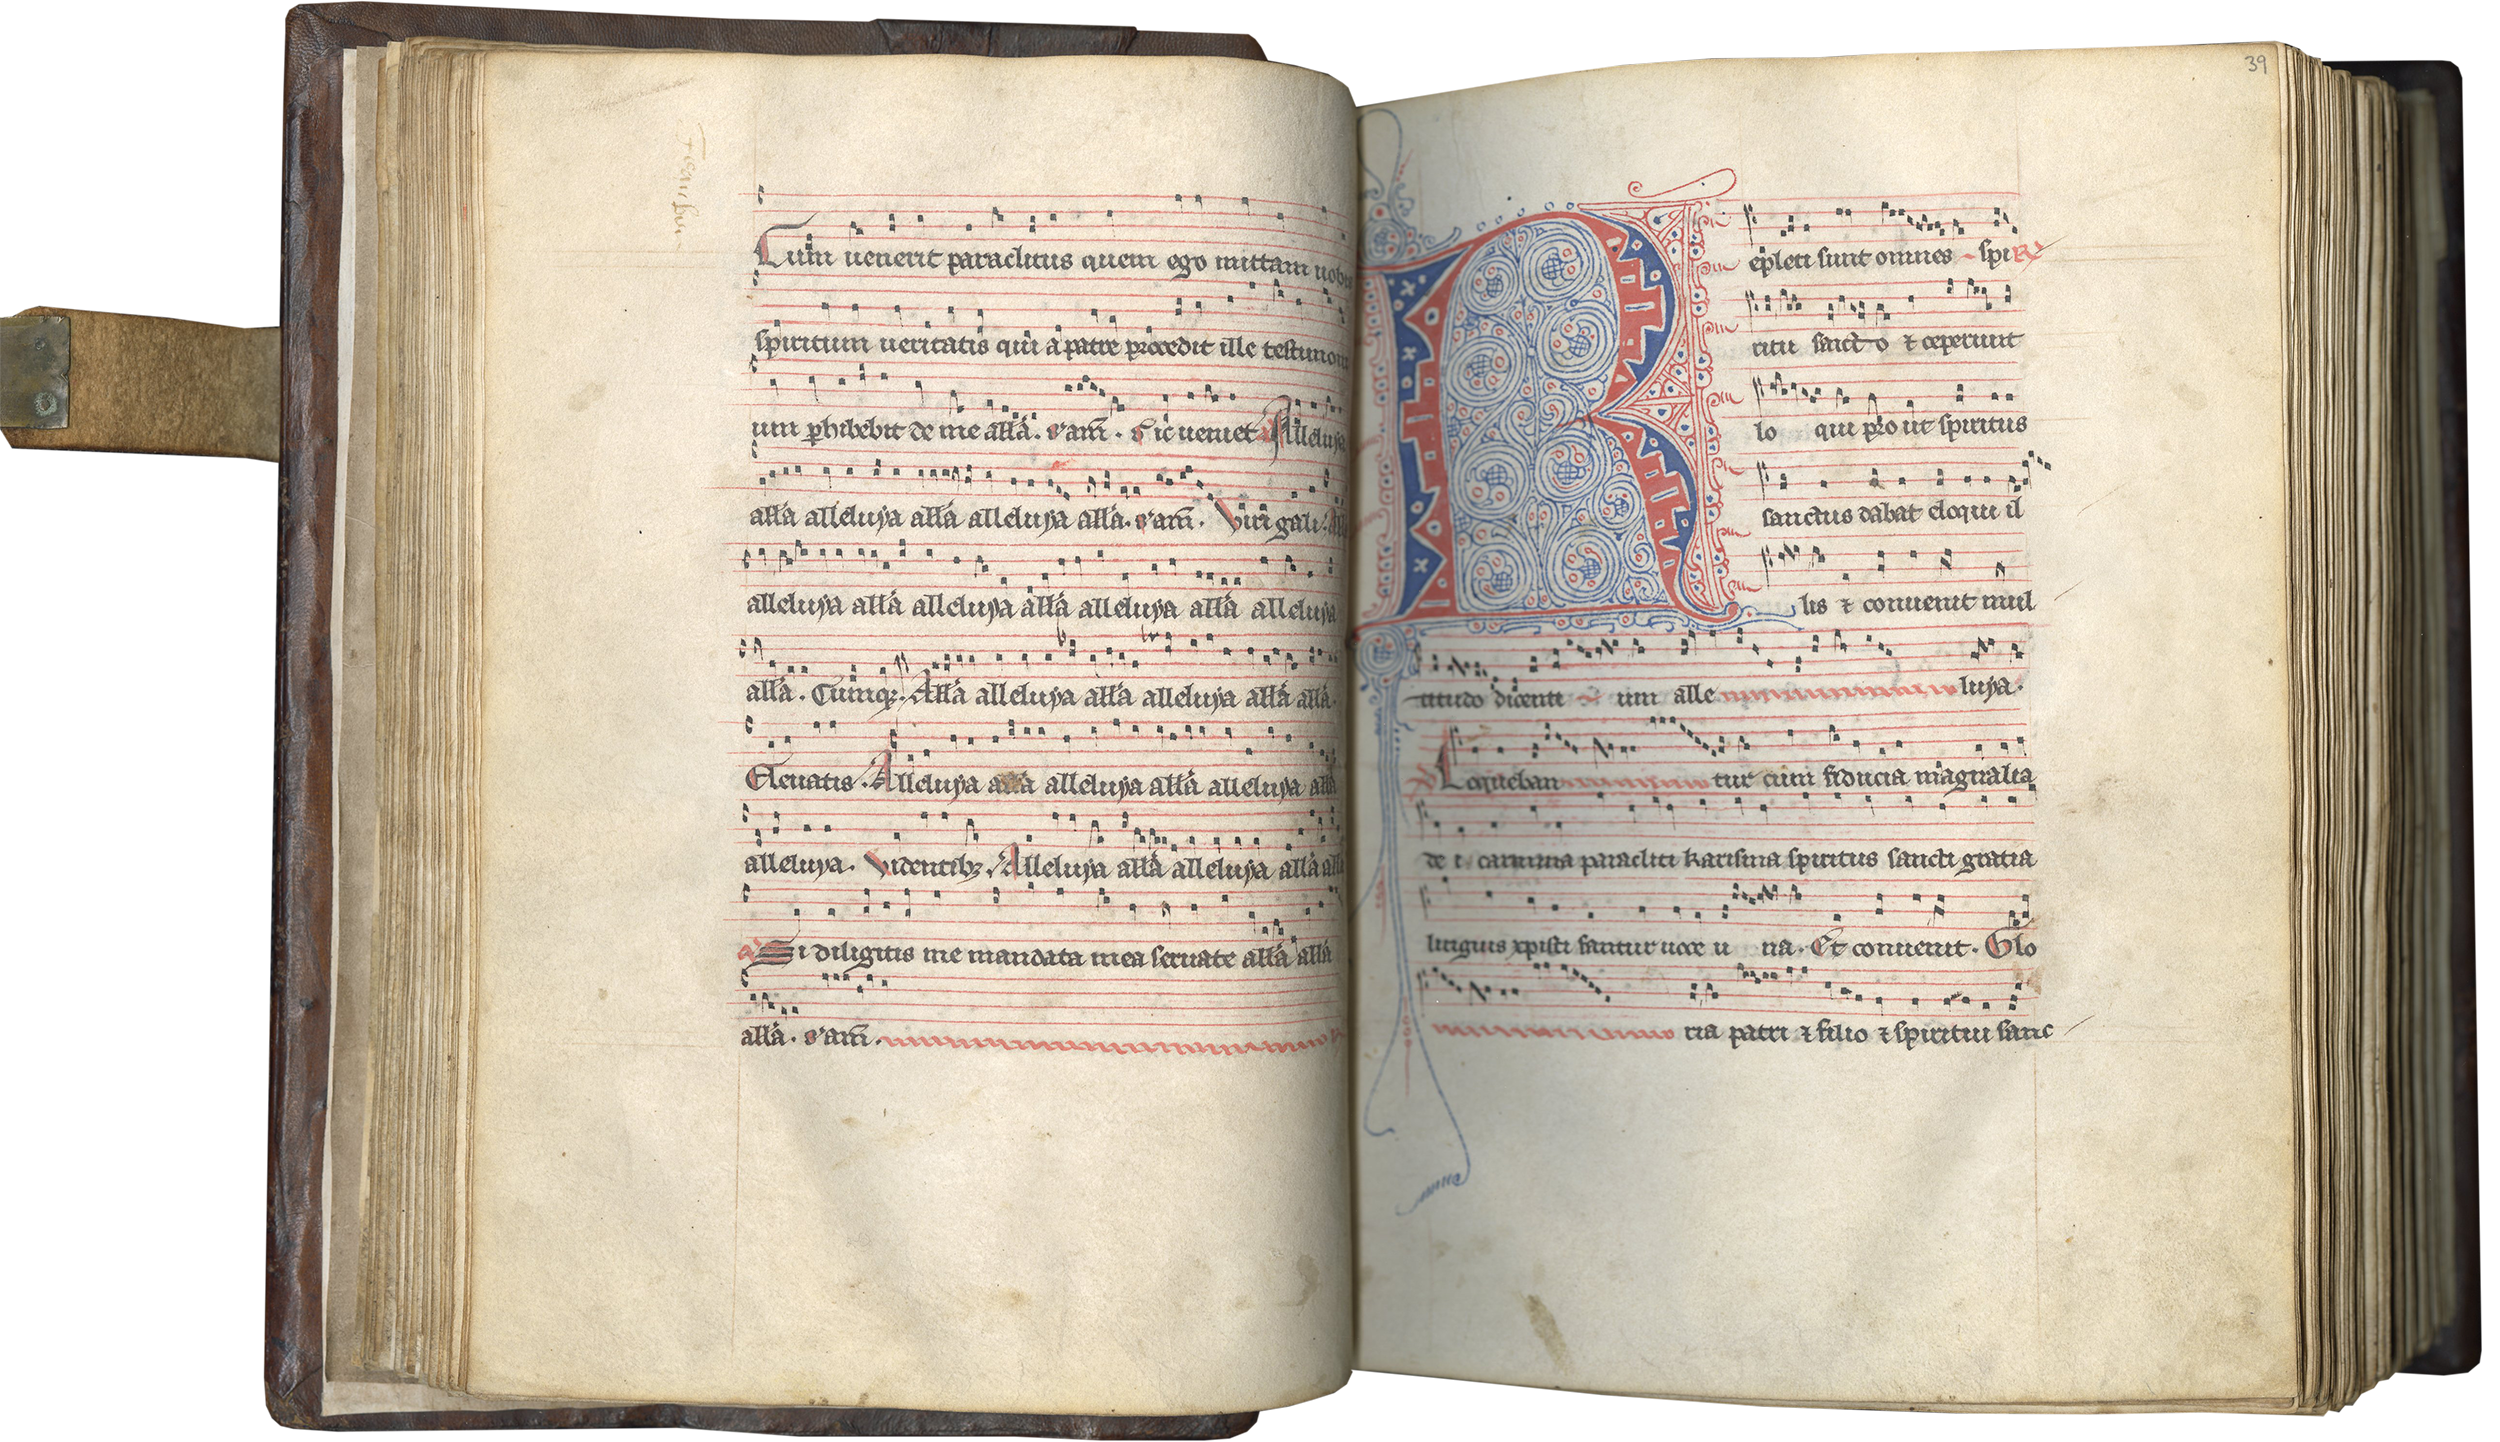 Cum uenerit paraclitus quem ego mittam uobis
spiritum ueritatis qui a patre procedit ille testimoni
um phibebit de me alla. s'am. Sic ueniet Alleluya
alla alleluya alla alleluya alla. s'am. Viri gali. All
alleluya alla alleluya alla alleluya alla alleluya
alla. Cumq;. Alla alleluya alla alleluya alla alla.
Eleuatis. Alleluya alla alleluya alla alleluya alla
alleluya. Videntib;. Alleluya alla alleluya alla all
a' Si diligitis me mandata mea seruate alla alla
alla. s'am.
39
R epleti sunt omnes spi
ritu sancto ⁊ ceperunt
lo qui prout spiritus
sanctus dabat eloqui il
lis ⁊ conuenit mul
titudo dicenti um alle luya.
Loqueban tur cum fiducia magnalia
de i carmina paracliti karisma spiritus sancti gratia
linguis xpisti fantur uoce u na. Et conuenit. Glo
ria patri ⁊ filio ⁊ spiritui sanc